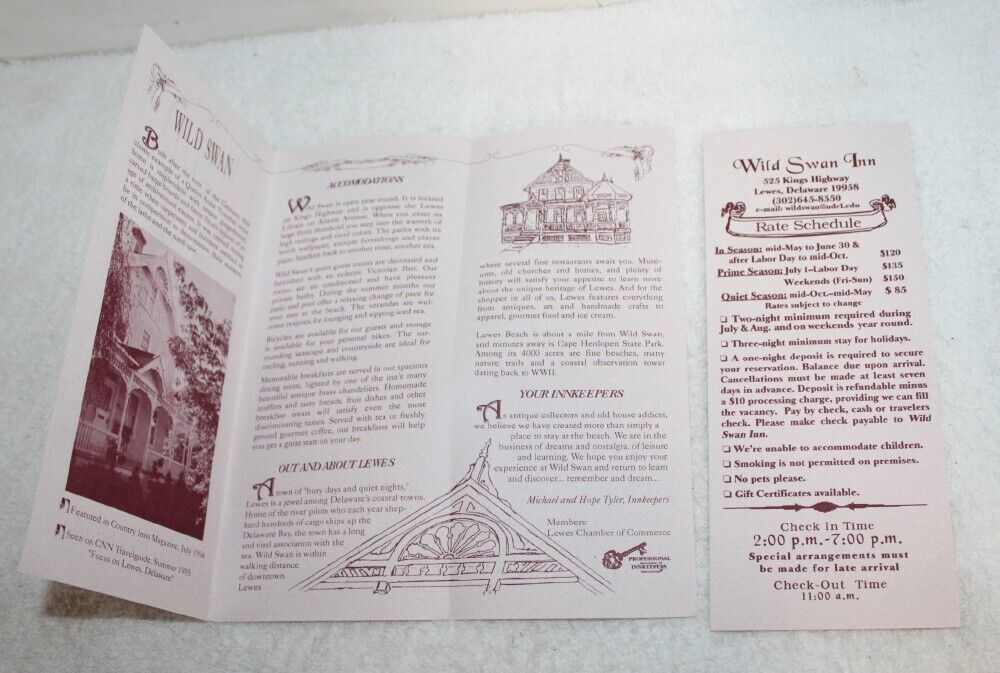 WILD SWAN
Built after the turn of the Century, our
classic example of a Queen Anne Victorian
home is resplendent with finely
carved barge boards
age of architectural excess and
a time when visitors can be encouraged to
be in surroundings which celebrate their moods
of the latter and the northeaster
Featured in Country Inns Magazine, July 1994
Seen on CNN Travelguide, Summer 1995,
"Focus on Lewes, Delaware"
ACCOMODATIONS
Wild Swan is open year round. It is located
on Kings Highway and is opposite the Lewes
Library on Adams Avenue. When you enter its
large front threshold you step into the warmth of
high ceilings and vivid colors. The parlor with its
lush wallpaper, antique furnishings and player
piano hearken back to another time, another era.
Wild Swan's quiet guest rooms are decorated and
furnished with an eclectic Victorian flair. Our
rooms are air conditioned and have pleasant
private baths. During the summer months our
pool and patio offer a relaxing change of pace for
your stay at the beach. The verandas are wel-
come respites for lounging and sipping iced tea.
Bicycles are available for our guests and storage
is available for your personal bikes. The sur-
rounding seascape and countryside are ideal for
cycling, running and walking.
Memorable breakfasts are served in our spacious
dining room, lighted by one of the inn's many
beautiful antique brass chandeliers. Homemade
muffins and tasty breads, fruit dishes and other
breakfast treats will satisfy even the most
discriminating tastes. Served with tea or freshly
ground gourmet coffee, our breakfasts will help
you get a great start on your day.
OUT AND ABOUT LEWES
A town of "busy days and quiet nights,"
Lewes is a jewel among Delaware's coastal towns.
Home of the river pilots who each year shep-
herd hundreds of cargo ships up the
Delaware Bay, the town has a long
and vital association with the
sea. Wild Swan is within
walking distance
of downtown
Lewes
where several fine restaurants await you. Muse-
ums, old churches and homes, and plenty of
history will satisfy your appetite to learn more
about the unique heritage of Lewes. And for the
shopper in all of us, Lewes features everything
from antiques, art and handmade crafts to
apparel, gourmet food and ice cream.
Lewes Beach is about a mile from Wild Swan,
and minutes away is Cape Henlopen State Park.
Among its 4000 acres are fine beaches, many
nature trails and a coastal observation tower
dating back to WWII.
YOUR INNKEEPERS
As antique collectors and old house addicts,
we believe we have created more than simply a
place to stay at the beach. We are in the
business of dreams and nostalgia, of leisure
and learning. We hope you enjoy your
experience at Wild Swan and return to learn
and discover... remember and dream...
Michael and Hope Tyler, Innkeepers
Members:
Lewes Chamber of Commerce
PROFESSIONAL
INNKEEPERS
Wild Swan Inn
525 Kings Highway
Lewes, Delaware 19958
(302)645-8550
e-mail: wildswan@udel.edu
Rate Schedule
In Season: mid-May to June 30 &
after Labor Day to mid-Oct. $120
Prime Season: July 1–Labor Day $135
Weekends (Fri-Sun) $150
Quiet Season: mid-Oct.–mid-May $ 85
Rates subject to change
❏ Two-night minimum required during
July & Aug. and on weekends year round.
❏ Three-night minimum stay for holidays.
❏ A one-night deposit is required to secure
your reservation. Balance due upon arrival.
Cancellations must be made at least seven
days in advance. Deposit is refundable minus
a $10 processing charge, providing we can fill
the vacancy. Pay by check, cash or travelers
check. Please make check payable to Wild
Swan Inn.
❏ We're unable to accommodate children.
❏ Smoking is not permitted on premises.
❏ No pets please.
❏ Gift Certificates available.
Check In Time
2:00 p.m.-7:00 p.m.
Special arrangements must
be made for late arrival
Check-Out Time
11:00 a.m.